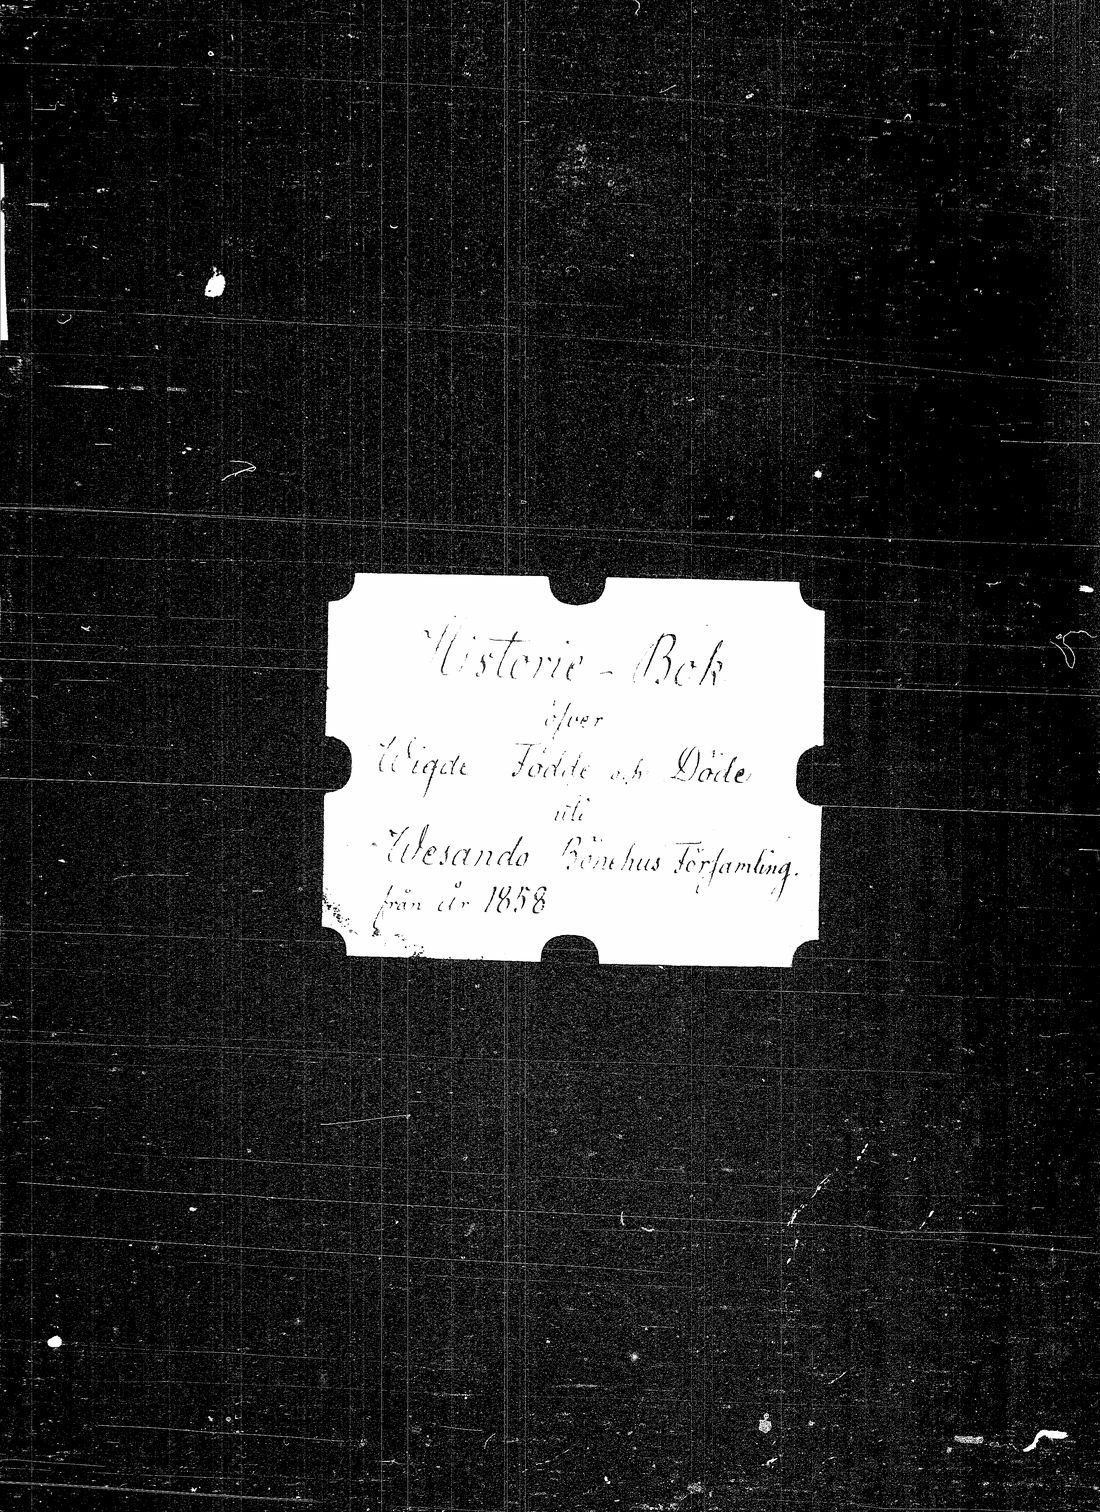 Historie - Bok
öfver
Wigde Födde och Döde
uti
Wesando Bönehus Församling.
från år 1858